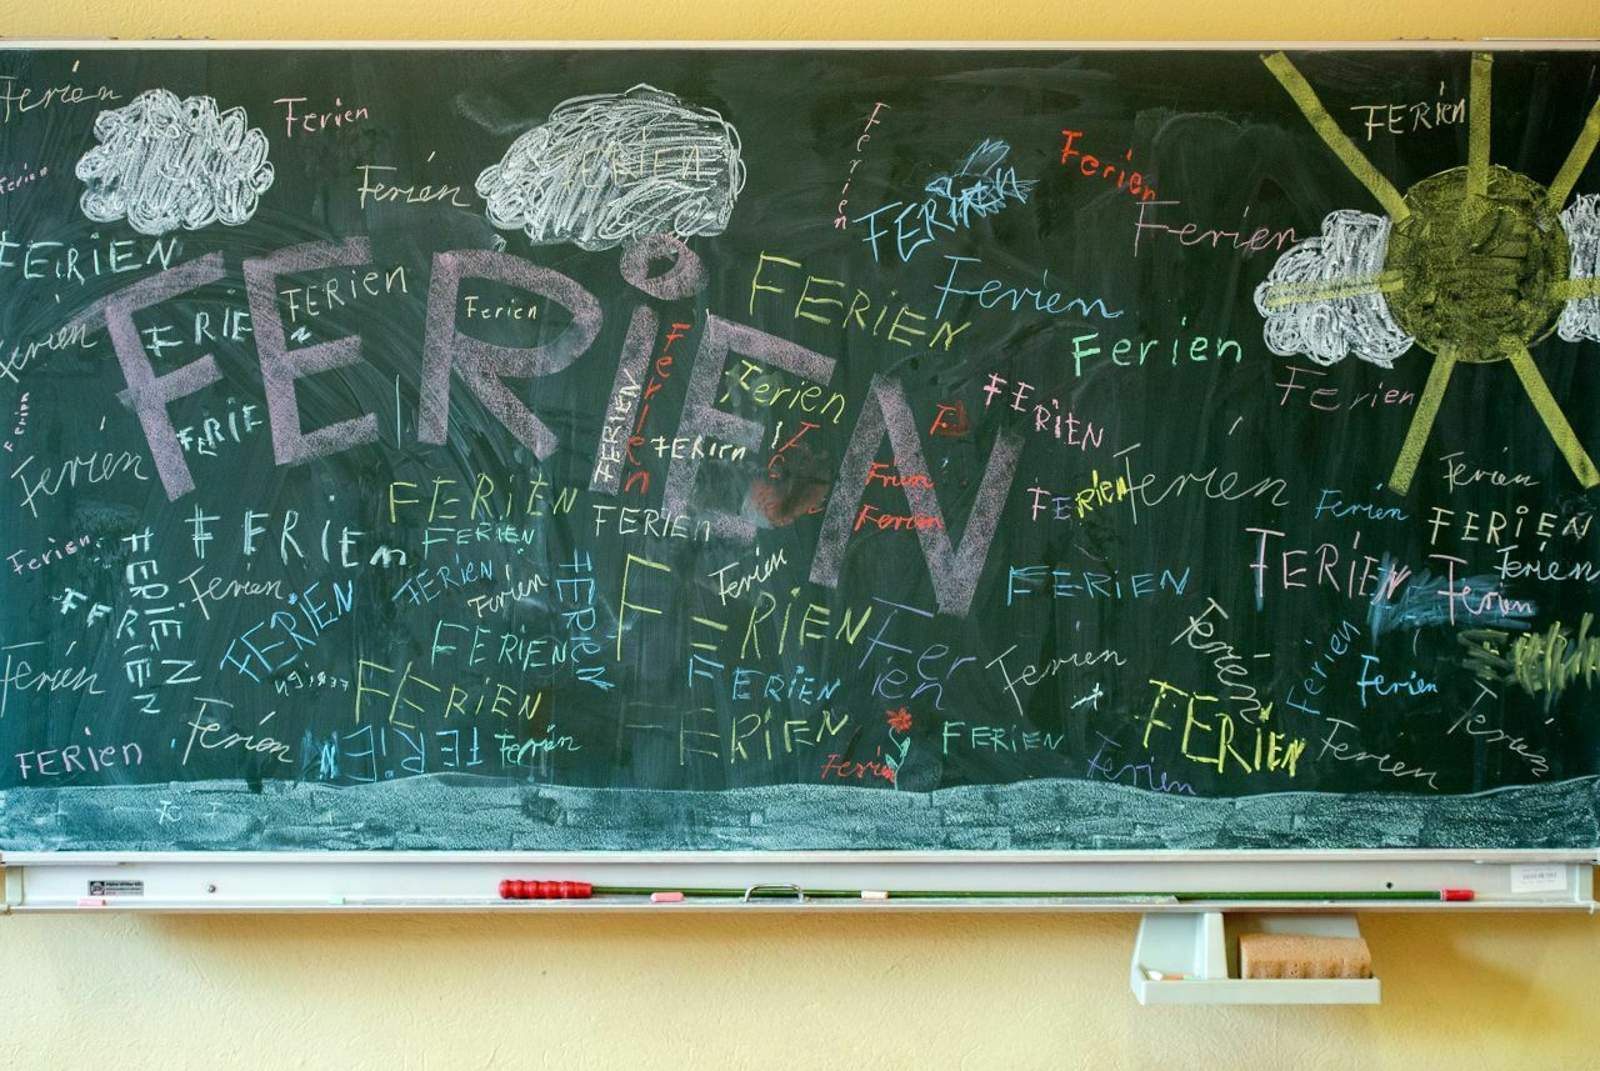 Ferien
Ferien
FERIEN
Ferien
Ferien
Ferien
Ferien
Ferien
Ferien
FERIEN
FERIEN
Ferien
FERIEN
FERIEN
FERIEN
Ferien
Ferien
Ferien
FERIEN
Ferien
Ferien
Ferien
FERIEN
Ferien
Ferien
FERIEN
FERIEN
Ferien
Ferien
Ferien
FERIEN
FERIEN
Ferien
FERIEN
FERIEN
FERIEN
FERIEN
Ferien
FERIEN
FERIEN
Ferien
Ferien
FERIEN
Ferien
FERIEN
FERIEN
Ferien
Ferien
FERIEN
FERIEN
FERIEN
FERIEN
FERIEN
Ferien
Ferien
Ferien
Ferien
Ferien
FERIEN
FERIEN
Ferien
FERIEN
Ferien
FERIEN
Ferien
FERIEN
FERIEN
Ferien
Ferien
FERIEN
Ferien
FERIEN
Ferien
Ferien